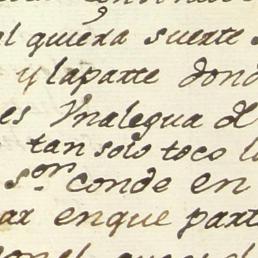 el quiera suerte
y laparte dond
es Vnalegua d
tan solo toco l
s.or conde en
ar enque part